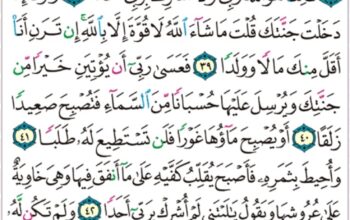 دَخَلْتَ جَنَّتَكَ قُلْتَ مَا شَآءَ ٱللَّهُ لَا قُوَّةَ إِلَّا بِٱللَّهِۚ إِن تَرَنِ أَنَا۠
أَقَلَّ مِنكَ مَالًا وَوَلَدًا ٣٩ فَعَسَىٰ رَبِّىٓ أَن يُؤْتِيَنِ خَيْرًا مِّن
جَنَّتِكَ وَيُرْسِلَ عَلَيْهَا حُسْبَانًا مِّنَ ٱلسَّمَآءِ فَتُصْبِحَ صَعِيدًا
زَلَقًا ٤٠ أَوْ يُصْبِحَ مَآؤُهَا غَوْرًا فَلَن تَسْتَطِيعَ لَهُۥ طَلَبًا ٤١
وَأُحِيطَ بِثَمَرِهِۦ فَأَصْبَحَ يُقَلِّبُ كَفَّيْهِ عَلَىٰ مَآ أَنفَقَ فِيهَا وَهِىَ خَاوِيَةٌ
عَلَىٰ عُرُوشِهَا وَيَقُولُ يَٰلَيْتَنِى لَمْ أُشْرِكْ بِرَبِّىٓ أَحَدًا ٤٢ وَلَمْ تَكُن لَّهُۥ